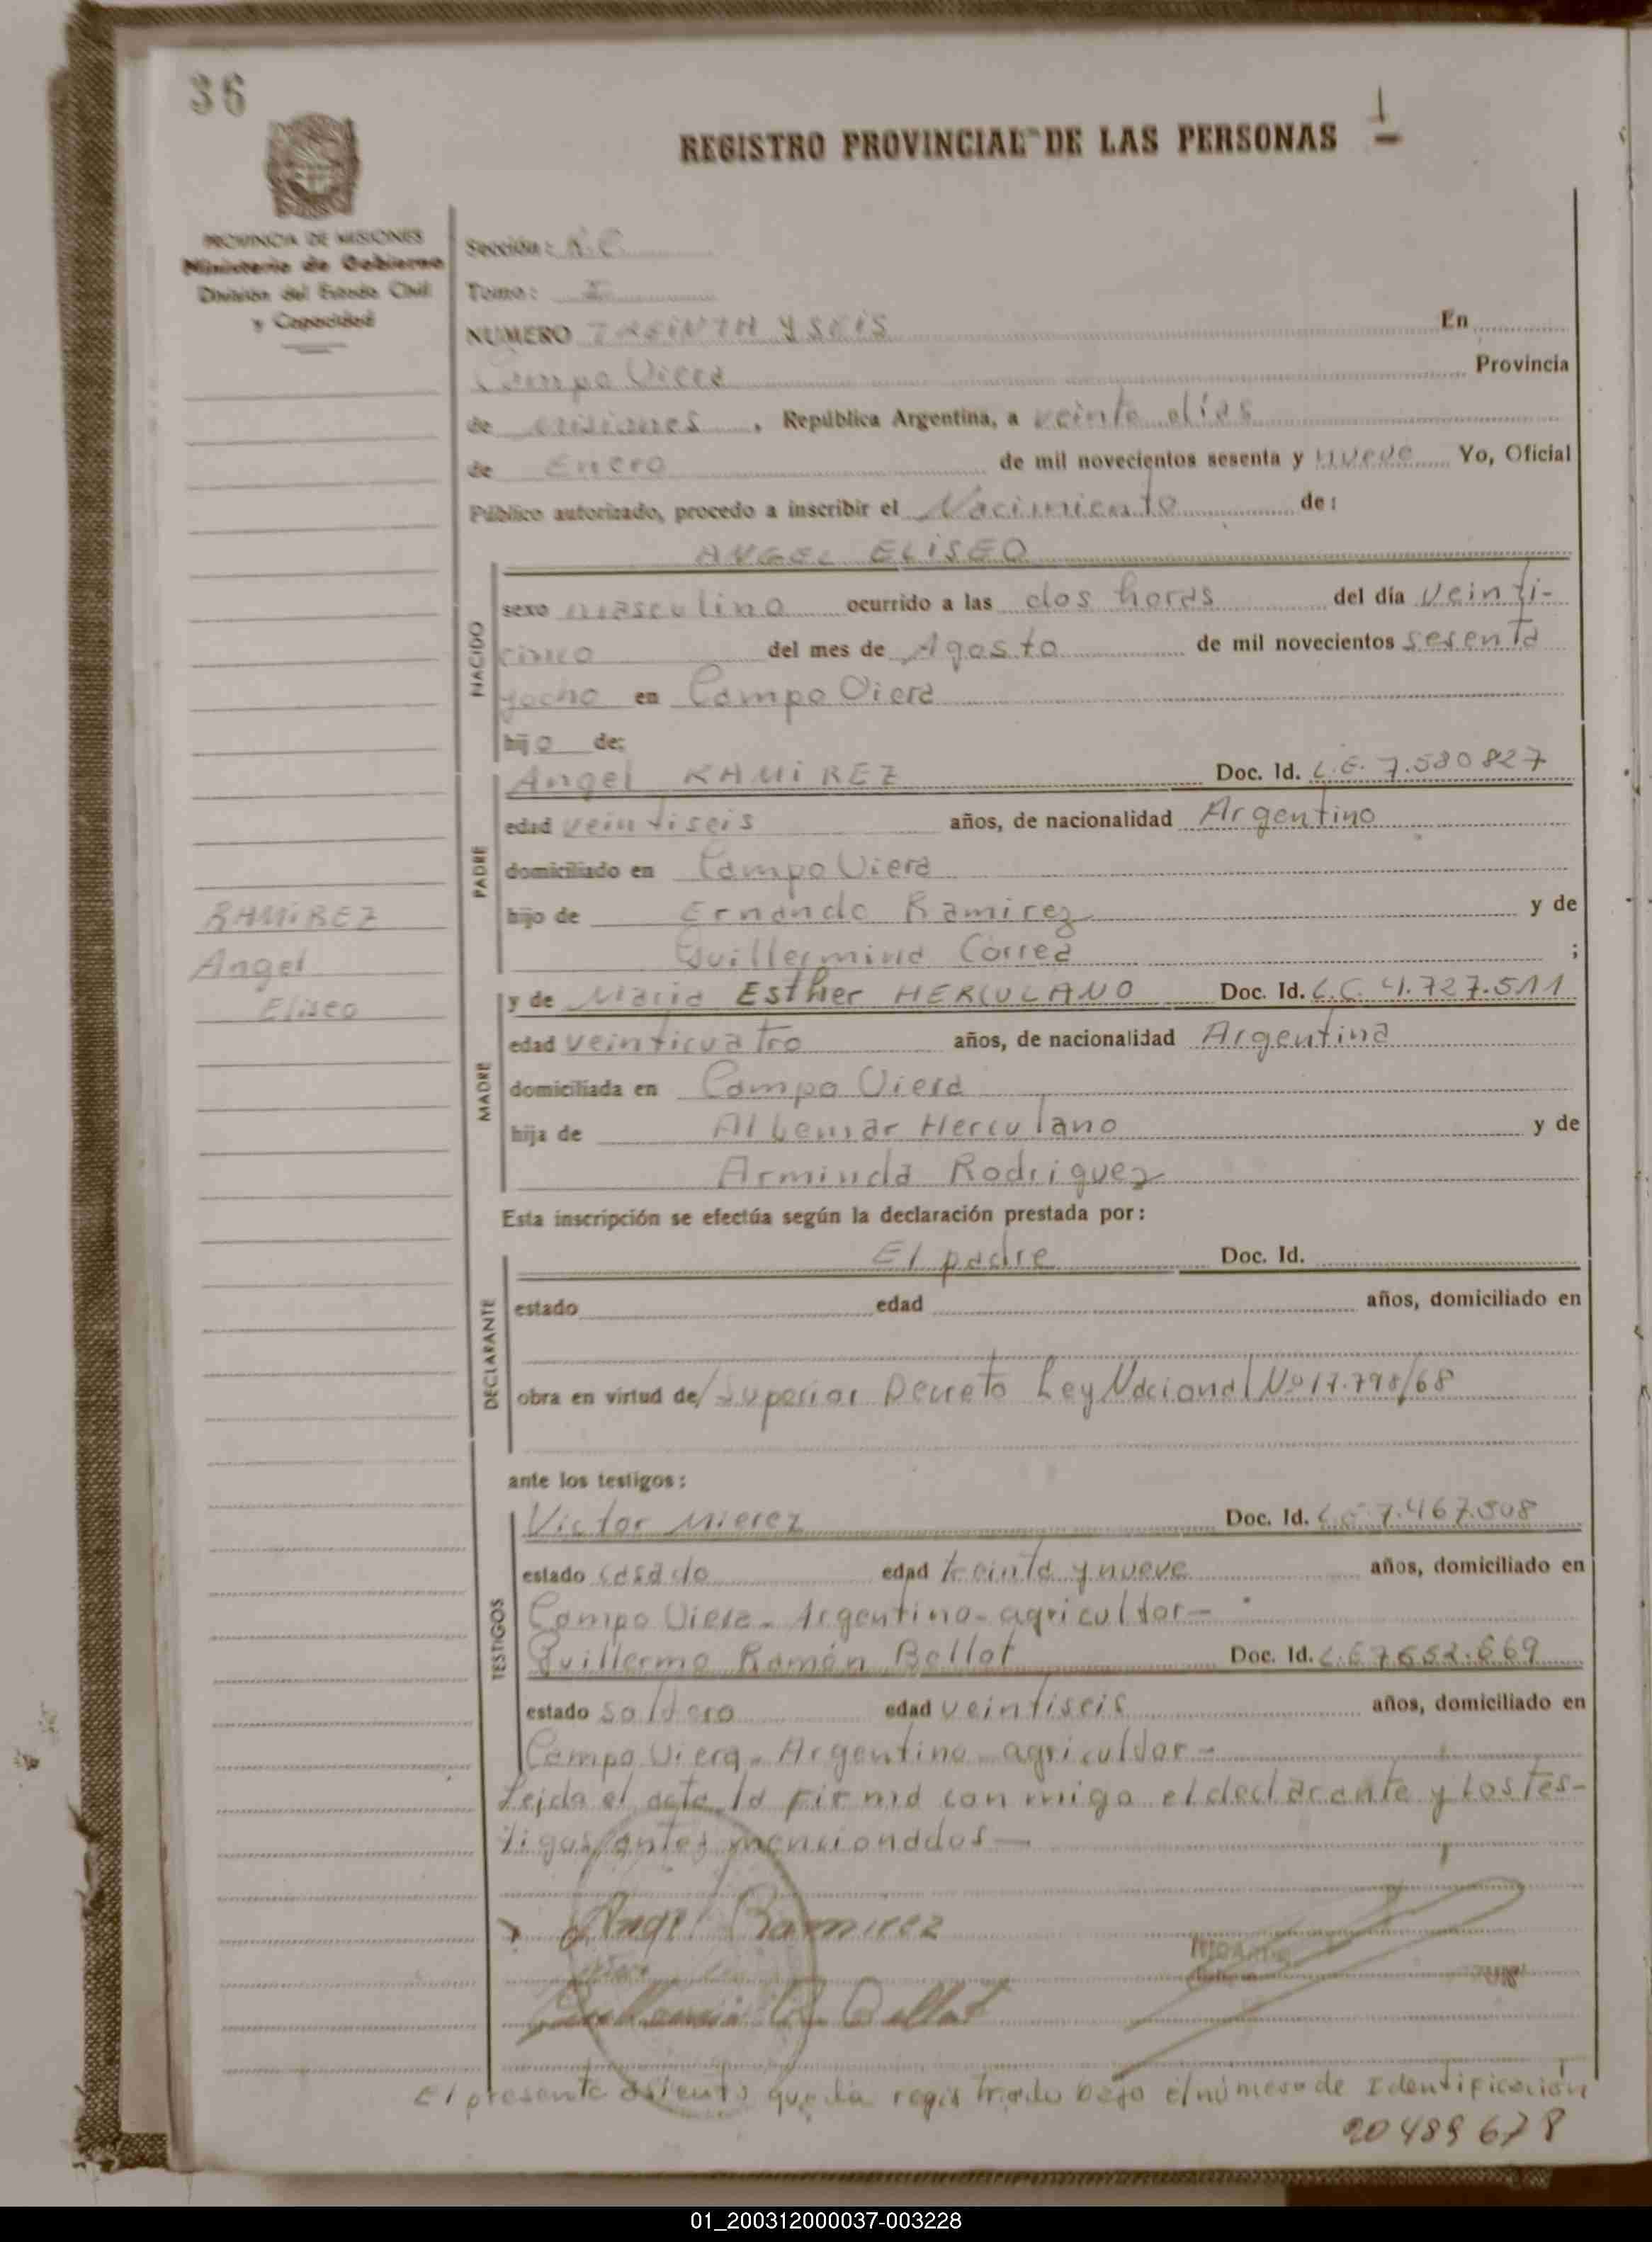 36
REGISTRO PROVINCIAL DE LAS PERSONAS
1
PROVINCIA DE MISIONES
Ministerio de Gobierno
División del Estado Civil
y Capacidad
Sección:
Tomo: I
NUMERO TREINTA Y SEIS En
Campo Viera Provincia
de Misiones, República Argentina, a veinte días
de Enero de mil novecientos sesenta y nueve Yo, Oficial
Público autorizado, procedo a inscribir el Nacimiento de:
ANGEL ELISEO
NACIDO
sexo masculino ocurrido a las dos horas del día veinti-
cinco del mes de Agosto de mil novecientos sesenta
yocho en Campo Viera
hijo de:
PADRE
Angel RAMIREZ Doc. Id. L.E. 7.580827
edad veintiseis años, de nacionalidad Argentino
domiciliado en Campo Viera
hijo de Ernando Ramirez y de
Guillermina Correa ;
RAMIREZ
Angel
Eliseo
MADRE
y de Maria Esther HERCULANO Doc. Id. L.C. 4.727.511
edad veinticuatro años, de nacionalidad Argentina
domiciliada en Campo Viera
hija de Herculano y de
Arminda Rodriguez
Esta inscripción se efectúa según la declaración prestada por:
DECLARANTE
El padre Doc. Id.
estado edad años, domiciliado en
obra en virtud de/ Superior Decreto Ley Nacional Nº 17.798/68
ante los testigos:
TESTIGOS
Victor Mierez Doc. Id. L.E 7.467.508
estado casado edad treinta y nueve años, domiciliado en
Campo Viera - Argentino - agricultor -
Guillermo Ramón Bellot Doc. Id. L.E 7.652.669
estado soltero edad veintiseis años, domiciliado en
Campo Viera - Argentino - agricultor -
Leida el acta la firma con migo el declarante y los tes-
tigos antes mencionados —
Angel Ramirez
Bellot
El presente asiento queda registrado bajo el número de Identificación
20489678
01_200312000037-003228